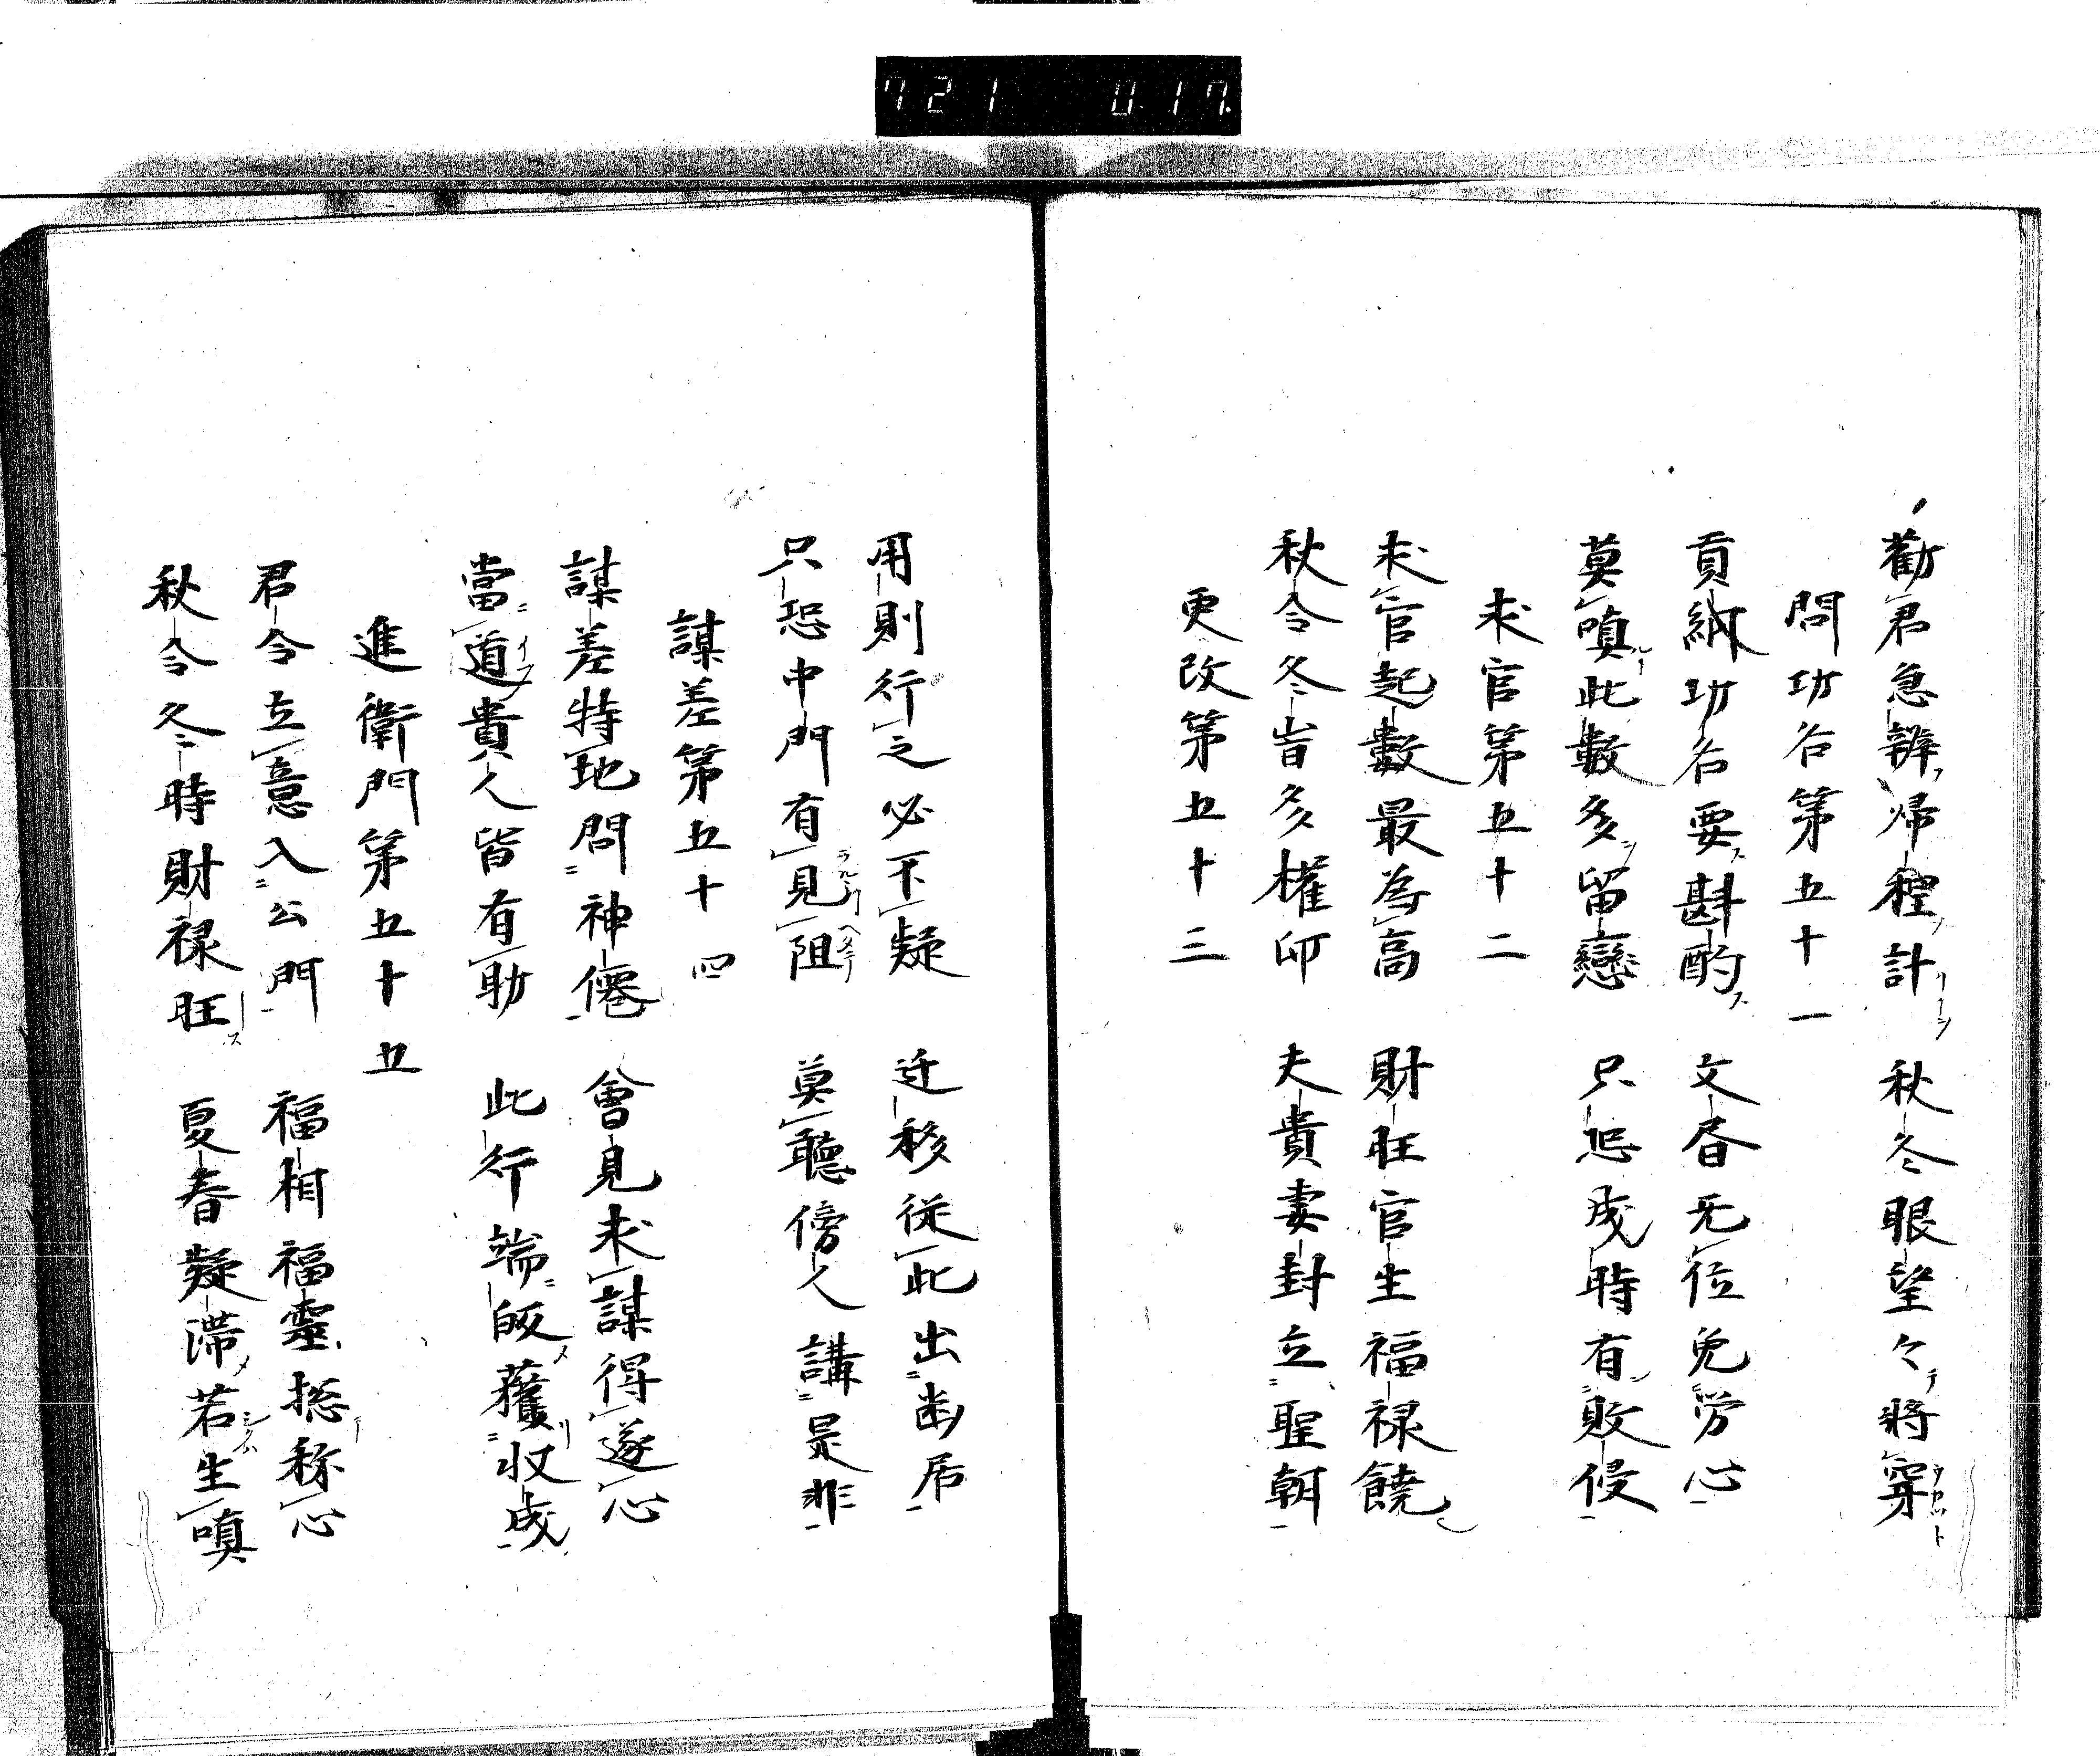 721 017.
勸君急辨帰程計 秋冬眼望々將穿
問功名第五十一
貢紙功名要斟酌 文昏无位免労心
莫嗔此數多留戀 只恐成時有敗侵
求官第五十二
求官起數最為高 財旺官生福禄饒
秋令冬旹多權印 夫貴妻封立聖朝
更改第五十三
用則行之必不疑 迁移従此出幽居
只恐中門有見阻 莫聽傍人講是非
謀差第五十四
謀差特地問神僊 會見求謀得遂心
當道貴人皆有助 此行端的獲収成
進衛門第五十五
君令立意入公門 福相福霊揔称心
秋令冬時財禄旺 夏春疑滞若生嗔